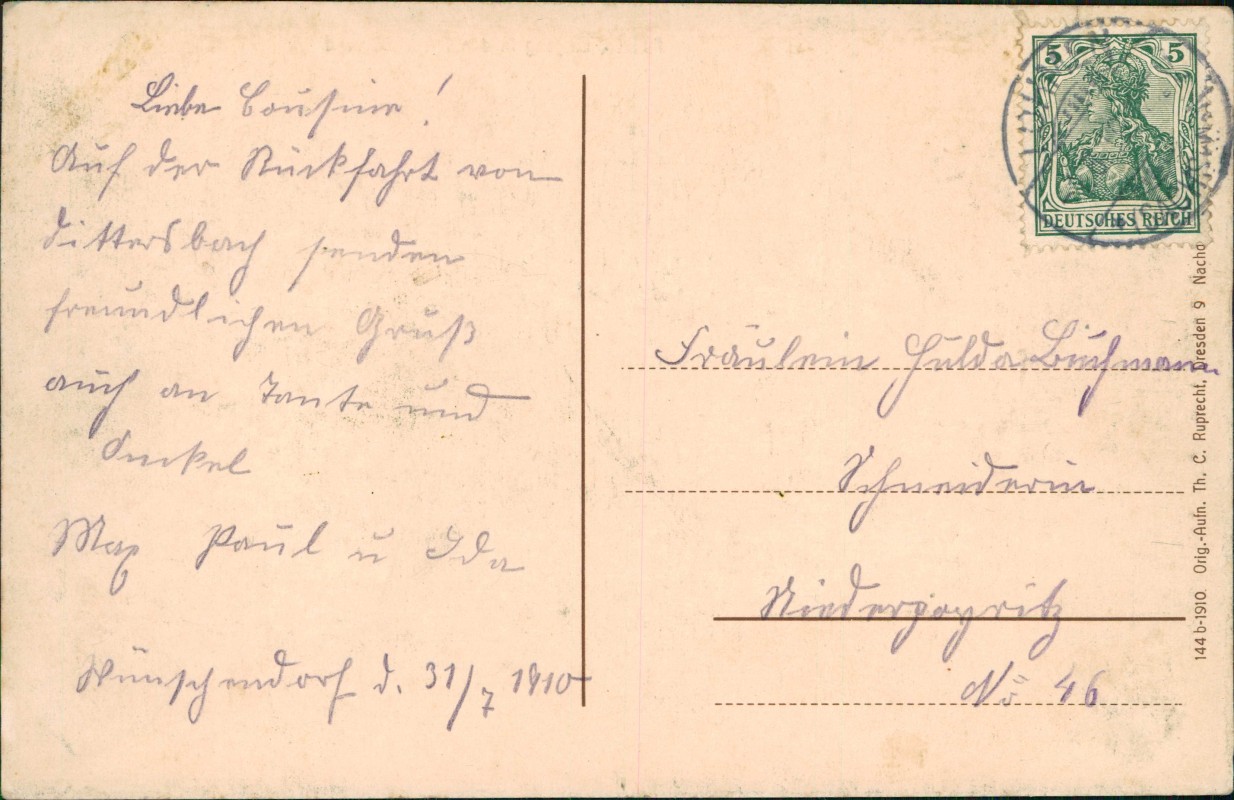 Liebe Cousine!
Auf der Rückfahrt von
Dittersbach senden
freundlichen Gruß
auch an Tante und
Onkel
Max Paul u Ida
Wünschendorf d. 31/7 1910
5 5
DEUTSCHES REICH
Fräulein Hulda Buchmann
Schneiderin
Niederpoyritz
No 46
144 b-1910. Orig.-Aufn. Th. C. Ruprecht, Dresden 9 Nacho